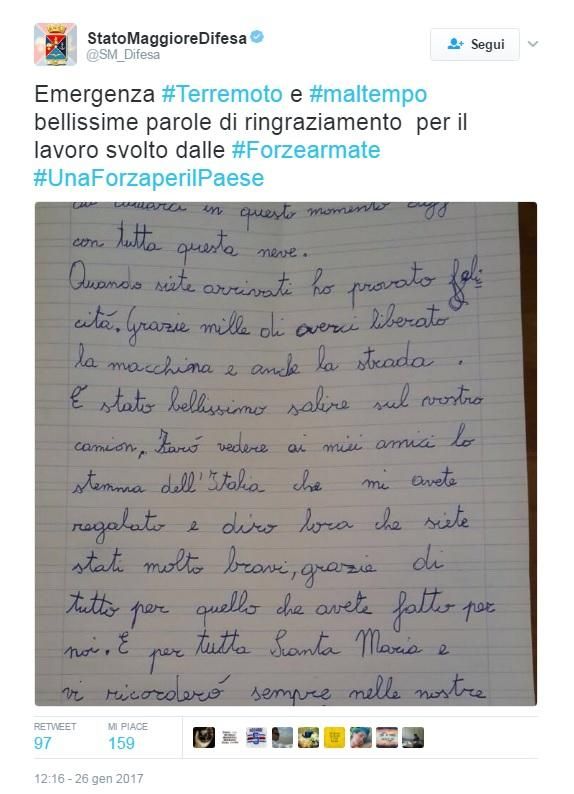 StatoMaggioreDifesa
@SM_Difesa
Segui
Emergenza #Terremoto e #maltempo
bellissime parole di ringraziamento per il
lavoro svolto dalle #Forzearmate
#UnaForzaperilPaese
in questo momento
con tutta questa neve.
Quando siete arrivati ho provato feli
cità. Grazie mille di averci liberato
la macchina e anche la strada.
È stato bellissimo salire sul vostro
camion, Farò vedere ai miei amici lo
stemma dell'Italia che mi avete
regalato e diro loro che siete
stati molto bravi, grazie di
tutto per quello che avete fatto per
noi. E per tutta Santa Maria e
vi ricorderó sempre nelle nostre
RETWEET
97
MI PIACE
159
12:16 - 26 gen 2017